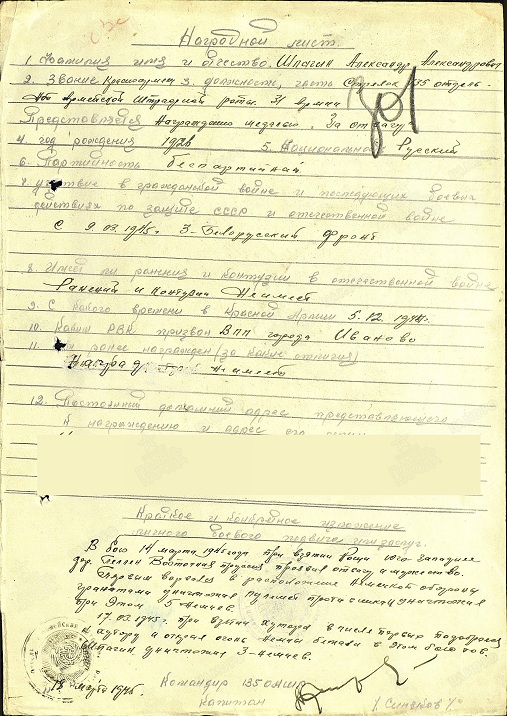 Наградной лист.
1. Фамилия имя и отчество. Шпагин Александр Александрович
2. Звание Красноармеец 3. должность, часть Стрелок 135 отдель-
ной армейской штрафной роты. 31 армии
Представляется Награждению медалью "За отвагу"
4. год рождения 1926 5. Национальность Русский
6. Партийность беспартийный
7. участие в гражданской войне и последующих боевых
действиях по защите СССР и отечественной войне
С 9.03.1945г 3-Белорусский Фронт
8. Имеет ли ранения и контузии в отечественной войне
Ранений и контузии Не имеет
9. С какого времени в Красной Армии 5.12.1944г.
10. Каким РВК призван ВПП города Иваново
11. Чем ранее награжден (за какие отличия)
Не имеет
12. Постоянный домашний адрес представляемого
к награждению и адрес его
Краткое и конкретное изложение
личного боевого подвига или заслуг.
В бою 14 марта 1945 года при взятии рощи юго-западнее
дер. Восточная Пруссия проявил отвагу и мужество.
Первым ворвался в расположение Немецкой обороны
гранатами уничтожил пулемет противника уничтожив
при этом 5-Немцев.
17.03.1945г. при взятии хутора в числе первых
к хутору и открыл огонь в этом бою тов.
Шпагин уничтожил 3-Немцев.
Командир 135 ОАШР
Капитан
18 марта 1945